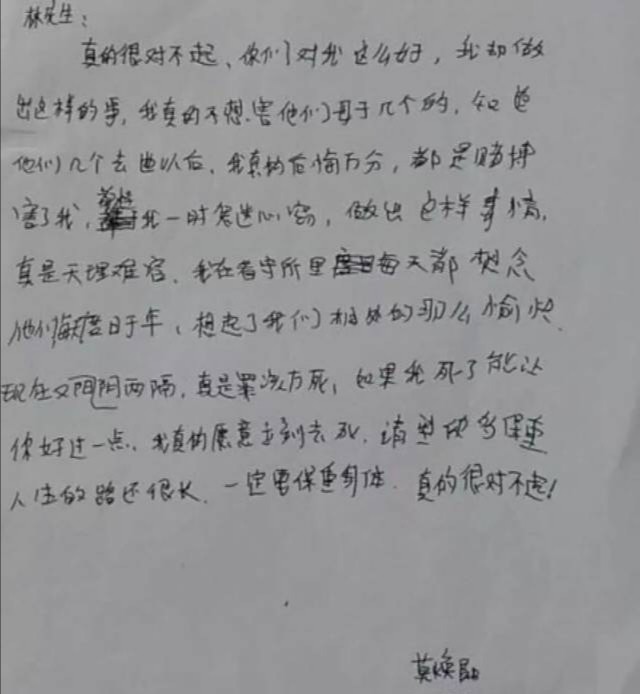 林先生：
真的很对不起、你们对我这么好，我却做
出这样的事，我真的不想害他们母子几个的，知道
他们几个去世以后，我真的后悔万分，都是赌博
害了我，我一时鬼迷心窍，做出这样事情，
真是天理难容、我在看守所里每天都想念
他们度日于年，想起了我们相处的那么愉快，
现在又阴阳两隔，真是罪该万死，如果我死了能让
你好过一点、我真的愿意去死，请 多保重
人生的路还很长、一定要保重身体．真的很对不起！
莫焕晶